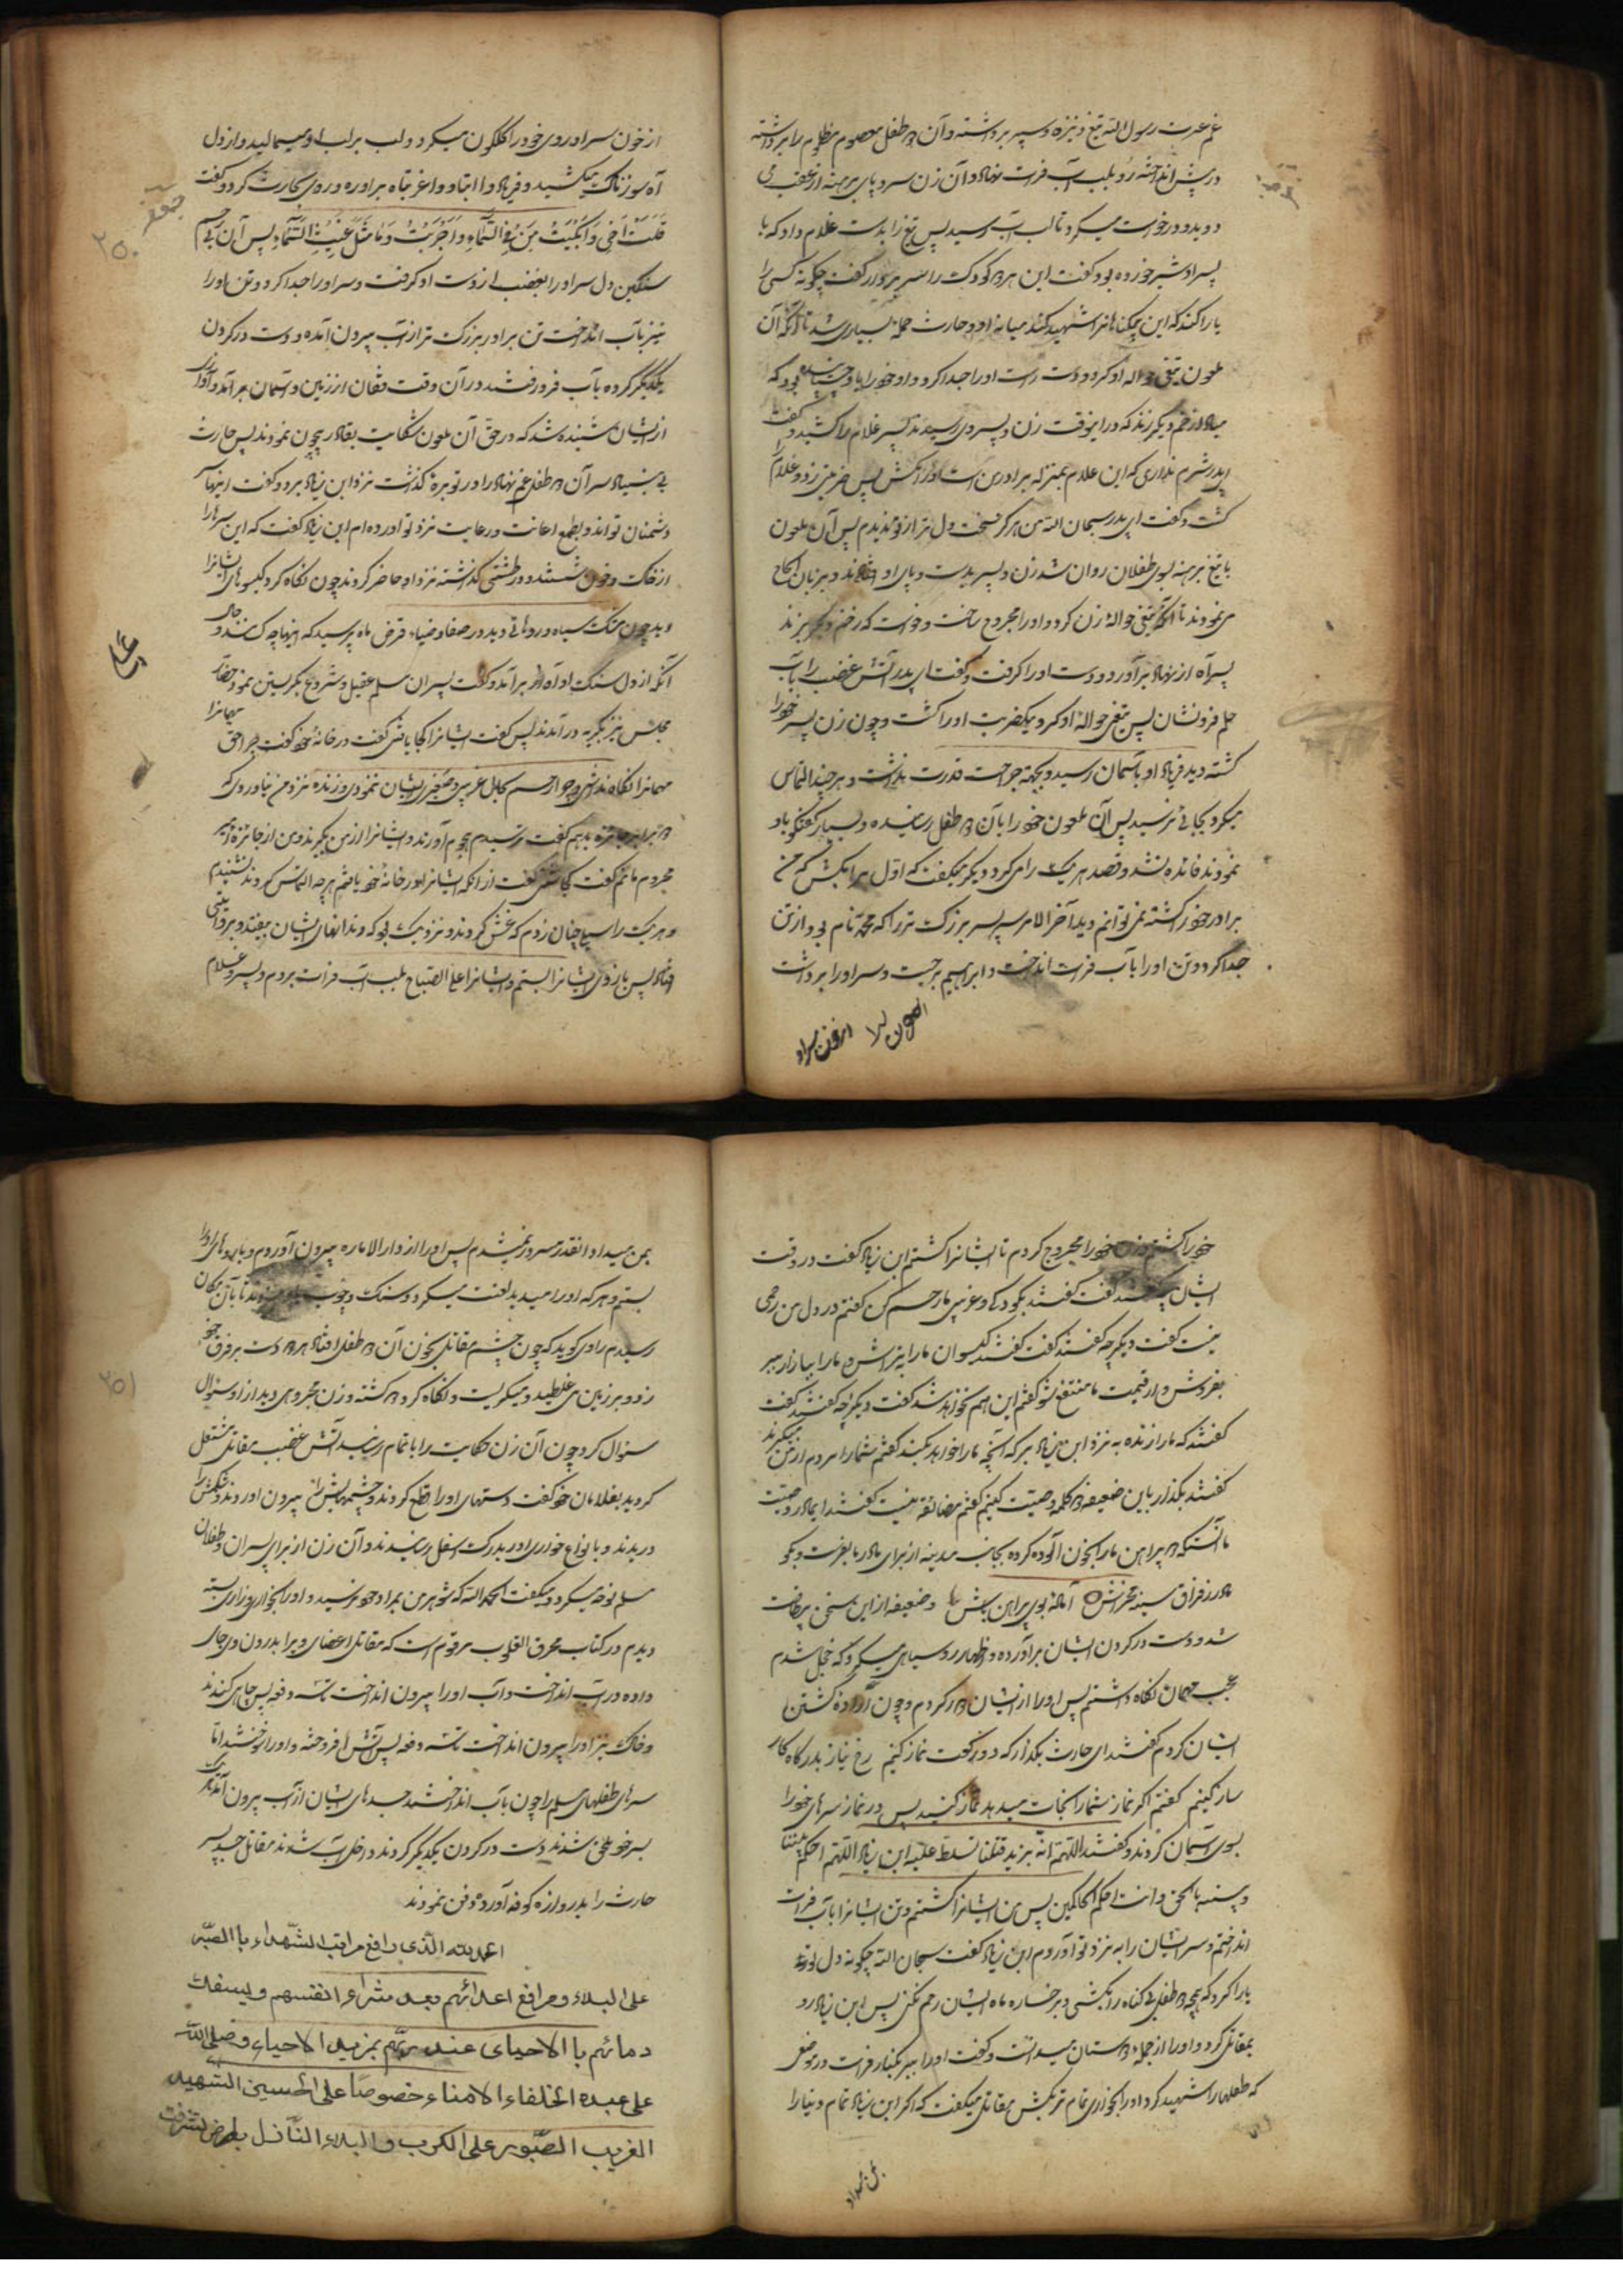 غم عترت رسول الله تیغ و نیزه و سپر برداشته و آن دو طفل معصوم مظلوم را برداشته
در پیش انداخته رو بلب آب فرات نهاد و آن زن سر و پای برهنه از عقب می
دوید و درخواست میکرد تا لب آب رسید پس تیغ را بدست غلام داد که با
پسر او شیر خورده بود و گفت این هر دو کودک را سر بردار گفت چگونه کسی را
یارا کند که این بیگناهانرا شهید کند میانه او و حارث حمله بسیاری شد تا آنکه آن
ملعون تیغی حواله او کرد و دست راست او را جدا کرد و او خود را باو
مبادا زخم دیگر زند که در اینوقت زن و پسر وی رسیدند پسر غلام را کشید و گفت
ای پدر شرم نداری که این غلام بمنزله برادر من است او را مکش پس ضربتی زد و غلام را
کشت و گفت ای پدر سبحان الله من هرگز سخت دل تر از تو ندیدم پس آن ملعون
با تیغ برهنه بسوی طفلان روان شد زن و پسر بدست و پای او افتادند و بزبان الحاح
می نمودند تا آنکه تیغی حواله زن کرد و او را مجروح ساخت و خواست که زخم دیگر بزند
پسر آه از نهاد برآورد و دست او را گرفت و گفت ای پدر آتش غضب را بآب
حلم فرو نشان پس تیغی حواله او کرد و بیکضربت او را کشت و چون زن پسر خود را
کشته دید فریاد او بآسمان رسید و بجهة جراحت قدرت نداشت و هر چند التماس
میکرد بجائی نرسید پس آن ملعون خود را بآن دو طفل رسانیده و بسیار گفتگو باو
نمودند فائده نشد و قصد هر یک را می کرد دیگر میگفت که اول مرا بکش که من
برادر خود را کشته نمی توانم دید آخر الامر سر پسر بزرگ تر را که محمد نام بود از تن
جدا کرد و تن او را بآب فرات انداخت و ابراهیم برجست و سر او را برداشت
از خون سر او
از خون سر او روی خود را گلگون میکرد و لب بر لب او میمالید و از دل
آه سوزناک میکشید و فریاد وا ابتاه و وا غربتاه برآورده رو بحارث کرد و گفت
قتلت اخی و ابکیت من فی السماء و
سنگین دل سر او را بغضب از دست او گرفت و سر او را جدا کرد و تن او را
نیز بآب انداخت تن برادر بزرگ تر از آب بیرون آمده و دست در گردن
یکدیگر کرده بآب فرو رفتند در آن وقت فغان از زمین و آسمان برآمد و آواز
از ایشان شنیده شد که در حق آن ملعون شکایت بقادر بیچون نمودند پس حارث
بی بنیاد سر آن دو طفل غم نهاد را در توبره گذاشت نزد ابن زیاد برد و گفت اینها سر
دشمنان تواند و بطمع اعانت و رعایت نزد تو آورده ام ابن زیاد گفت که این سرها را
از خاک و خون شستند و در طشتی گذاشته نزد او حاضر کردند چون نگاه کرد گیسوهای ایشانرا
دید چون مشک سیاه و روهائی دید در صفا و ضیاء قرص ماه پرسید که اینها چه کسند
آنکه از دل سنگ او آه برآمد و گفت پسران مسلم عقیل و شروع بگریستن نمود حضار
مجلس نیز بگریه در آمدند پس گفت ایشانرا کجا یافتی گفت در خانه خود گفت چرا حق مهمانرا
مهمانرا نگاه نداشتی و چرا رحم بحال غریبی و صغیری ایشان ننمودی و زنده نزد من نیاوردی که
دو برابر جایزه بدهم گفت ترسیدم هجوم آورند و ایشانرا از من بگیرند و من از جائزه امیر
محروم مانم گفت کجا کشتی گفت از آنکه ایشانرا در خانه خود یافتم هر چه التماس کردند نشنیدم
و هر یک را سیلی چنان زدم که غش کردند و نزدیک بود که دندانهای ایشان بیفتد و بروایتی
افتاد پس بازوی ایشانرا بستم و ایشانرا علی الصباح بلب آب فرات بردم و پسر و غلام
۲۵۰
خود را کشتم و زن خود را مجروح کردم تا ایشانرا کشتم ابن زیاد گفت در وقت
ایشان چه گفتند گفت گفتند بکودکی و غریبی ما رحم کن گفتم در دل من رحمی
نیست گفت دیگر چه گفتند گفت گفتند گیسوان ما را بتراش و ما را ببازار ببر
بفروش و از قیمت ما منتفع شو گفتم این هم نخواهد شد گفت دیگر چه گفتند گفت
گفتند که ما را زنده به نزد ابن زیاد ببر که آنچه ما را خواهد بکند گفتم شما را مردم از من میگیرند
گفتند بگذار باین ضعیفه دو کلمه وصیت کنیم گفتم مضائقه نیست گفتند ای مادر وصیت
ما آنستکه دو پیراهن ما را بخون آلوده کرده بجانب مدینه از برای مادر ما بفرست و بگو
مادر ز فراق سینه مخراش آماده بوی پیراهن باش و ضعیفه از این سخن بی طاقت
شد و دست در گردن ایشان برآورده و اظهار رو سیاهی میکرد که خجل شدم
عجب مهمان نگاه داشتم پس او را از ایشان دور کردم و چون اراده کشتن
ایشان کردم گفتند ای حارث بگذار که دو رکعت نماز کنیم رخ نیاز بدرگاه کار
ساز کنیم گفتم اگر نماز شما را نجات میدهد نماز کنید پس در نماز سرهای خود را
بسوی آسمان کردند و گفتند اللهم انه یزید قتلنا تسلط علیه ابن زیاد اللهم احکم بیننا
و بینه بالحق و انت احکم الحاکمین پس من ایشانرا کشتم و تن ایشانرا بآب فرات
انداختم و سر ایشان را به نزد تو آوردم ابن زیاد گفت سبحان الله چگونه دل تو
یارا کرد که بچه دو طفل بی گناه را بکشی و بر رخساره ماه ایشان رحم نکنی پس ابن زیاد رو
بمقاتل کرد و او را از جمله دوستان میدانست و گفت او را ببر بکنار فرات در موضعی
که طفلها را شهید کرد او را بخواری تمام تر بکش مقاتل میگفت که اگر ابن زیاد تمام دنیا را
بمن میداد
بمن میداد آنقدر مسرور نمیشدم پس او را از دار الاماره بیرون آوردم و بازوهای او را
بستم و هر که او را میدید لعنت میکرد و سنگ و چوب باو میزدند تا بآن مکان
رسیدم راوی گوید که چون چشم مقاتل بخون آن دو طفل افتاد هر دو دست بر فرق خود
زد و بر زمین می غلطید و میگریست و نگاه کرد دو کشته و زن مجروحی دید از او سئوال
سئوال کرد چون آن زن حکایت را باتمام رسانید آتش غضب مقاتل مشتعل
گردید بغلامان خود گفت دستهای او را قطع کردند و چشمهایش را از بیرون آوردند و شکمش را
دریدند و بانواع خواری او را بدرک اسفل رسانیدند و آن زن از برای پسران و طفلان
مسلم نوحه میکرد و میگفت الحمد لله که شوهر من بمراد خود نرسید و او را بخواری و زاری
دیدم در کتاب محرق القلوب مرقوم است که مقاتل اعضای ویرا بدرون وی جای
داده در آب انداخت و آب او را بیرون انداخت تا سه دفعه پس چاهی کندند
و خاک نیز او را بیرون انداخت تا سه دفعه پس آتش افروخته و او را سوختند اما
سرهای طفلهای مسلم را چون بآب انداختند جسدهای ایشان از آب بیرون آمد هر یک
بسر خود ملحق شدند دست در گردن یکدیگر کردند و داخل آب شدند مقاتل جسد پسر
حارث را بدروازه کوفه آورده دفن نمودند
الحمد لله الذی رافع مراتب الشهداء بالصبر
علی البلاء و مرافع اعدائهم بعد شراء انفسهم و بسفك
دمائهم با الاحیای عند ربهم بمزید الاحیاء و صلی الله
علی عبده الخلفاء الامناء خصوصا علی الحسین الشهید
الغریب الصبور علی الکرب و البلاء النازل بارض
۲۵۱